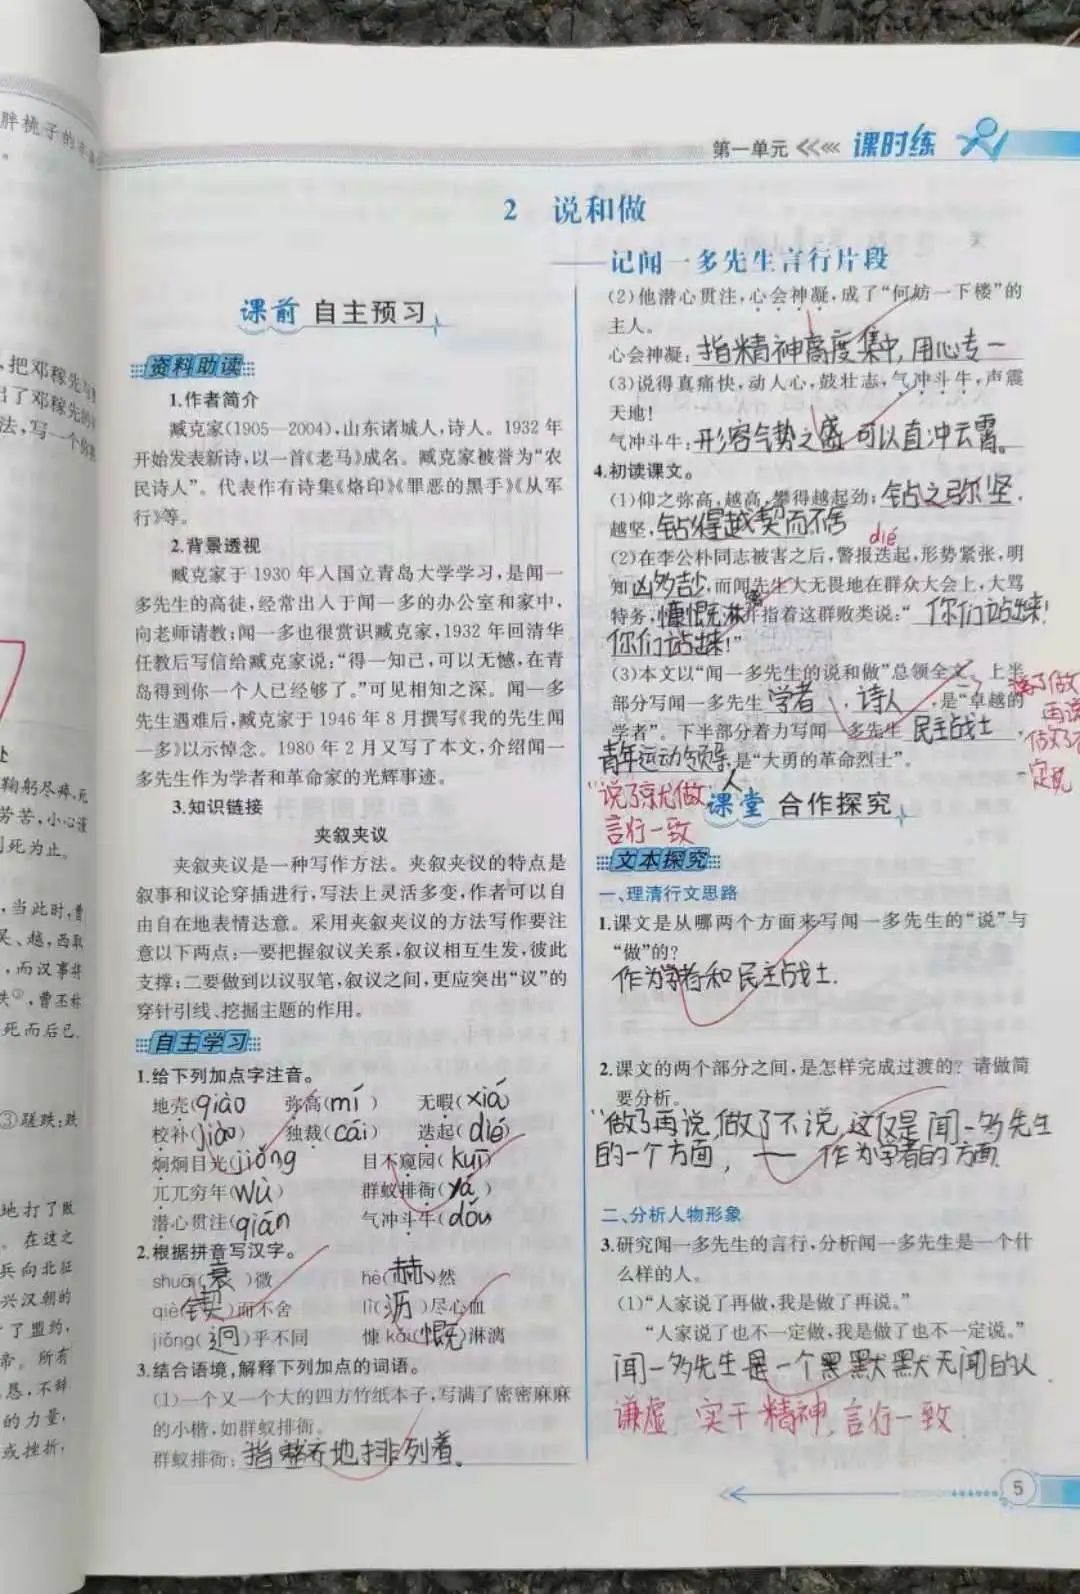 胖桃子的
，把邓稼先
出了邓稼先的
法，写一个
处
鞠躬尽瘁，死
劳苦，小心谨
到死为止。
，当此时，曹
吴、越，西取
，而汉事将
跌②，曹丕称
死而后已。
③蹉跌：跌
地打了败
。在这之
兵向北征
兴汉朝的
了盟约，
帝。所有
愚，不辞
的力量，
或挫折，
第一单元 课时练
2 说和做
——记闻一多先生言行片段
课前 自主预习
资料助读
1.作者简介
臧克家(1905—2004)，山东诸城人，诗人。1932年
开始发表新诗，以一首《老马》成名。臧克家被誉为“农
民诗人”。代表作有诗集《烙印》《罪恶的黑手》《从军
行》等。
2.背景透视
臧克家于1930年入国立青岛大学学习，是闻一
多先生的高徒，经常出入于闻一多的办公室和家中，
向老师请教；闻一多也很赏识臧克家，1932年回清华
任教后写信给臧克家说：“得一知己，可以无憾，在青
岛得到你一个人已经够了。”可见相知之深。闻一多
先生遇难后，臧克家于1946年8月撰写《我的先生闻
一多》以示悼念。1980年2月又写了本文，介绍闻一
多先生作为学者和革命家的光辉事迹。
3.知识链接
夹叙夹议
夹叙夹议是一种写作方法。夹叙夹议的特点是
叙事和议论穿插进行，写法上灵活多变，作者可以自
由自在地表情达意。采用夹叙夹议的方法写作要注
意以下两点：一要把握叙议关系，叙议相互生发，彼此
支撑；二要做到以议驭笔，叙议之间，更应突出“议”的
穿针引线、挖掘主题的作用。
自主学习
1.给下列加点字注音。
地壳(qiào 弥高(mí ) 无暇(xiá)
校补(jiào) 独裁(cái) 迭起(dié)
炯炯目光(jiǒng 目不窥园(kuī)
兀兀穷年(wù ) 群蚁排衙(yá )
潜心贯注(qián 气冲斗牛(dǒu
2.根据拼音写汉字。
shuāi(衰 )微 hè(赫)然
qiè(锲)而不舍 lì(沥 )尽心血
jiǒng(迥)乎不同 慷kǎi(慨)淋漓
3.结合语境，解释下列加点的词语。
(1)一个又一个大的四方竹纸本子，写满了密密麻麻
的小楷，如群蚁排衙。
群蚁排衙：指整齐地排列着。
(2)他潜心贯注，心会神凝，成了“何妨一下楼”的
主人。
心会神凝：指精神高度集中，用心专一
(3)说得真痛快，动人心，鼓壮志，气冲斗牛，声震
天地！
气冲斗牛：形容气势之盛可以直冲云霄。
4.初读课文。
(1)仰之弥高，越高，攀得越起劲；钻之弥坚，
越坚，钻得越契而不舍
dié
(2)在李公朴同志被害之后，警报迭起，形势紧张，明
知凶多吉少，而闻先生大无畏地在群众大会上，大骂
特务，慷慨淋漓，并指着这群败类说：“你们站出来！
你们站出来！”
(3)本文以“闻一多先生的说和做”总领全文，上半
部分写闻一多先生 学者 ，诗人 ，是“卓越的
学者”。下半部分着力写闻一多先生 民主战士 ，
青年运动领导人，是“大勇的革命烈士”。
了做
再说
做了不
定说
“说了就做
言行一致
课堂 合作探究
文本探究
一、理清行文思路
1.课文是从哪两个方面来写闻一多先生的“说”与
“做”的？
作为学者和民主战士.
2.课文的两个部分之间，是怎样完成过渡的？请做简
要分析。
“做了再说，做了不说，这仅是闻一多先生
的一个方面，—— 作为学者的方面.
二、分析人物形象
3.研究闻一多先生的言行，分析闻一多先生是一个什
么样的人。
(1)“人家说了再做，我是做了再说。”
“人家说了也不一定做，我是做了也不一定说。”
闻一多先生是一个黑默默无闻的人
谦虚 实干精神，言行一致
5